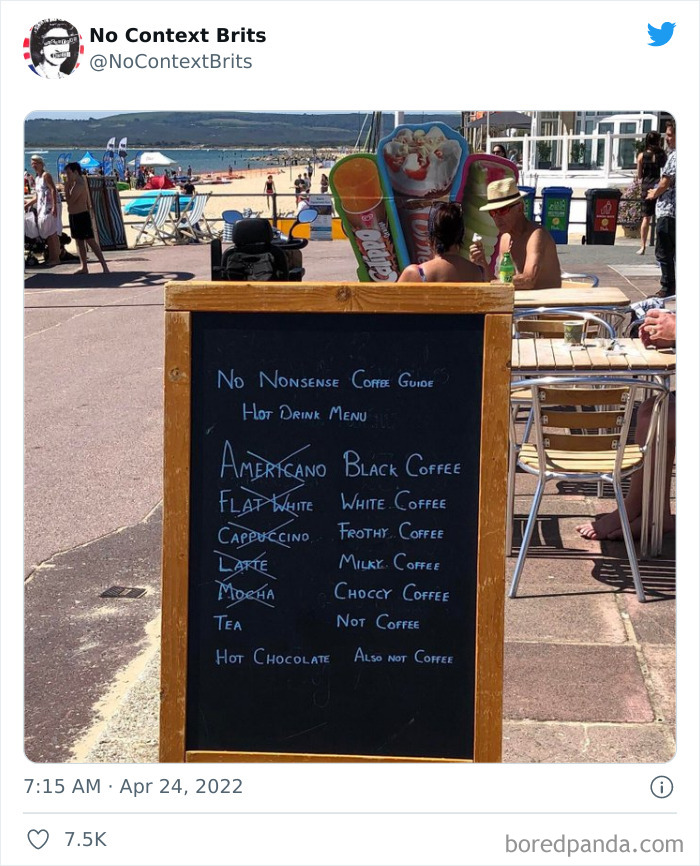 No Context Brits
@NoContextBrits
Calippo
No Nonsense Coffee Guide
Hot Drink Menu
Americano Black Coffee
Flat White White Coffee
Cappuccino Frothy Coffee
Latte Milky Coffee
Mocha Choccy Coffee
Tea Not Coffee
Hot Chocolate Also not Coffee
7:15 AM · Apr 24, 2022
7.5K
boredpanda.com